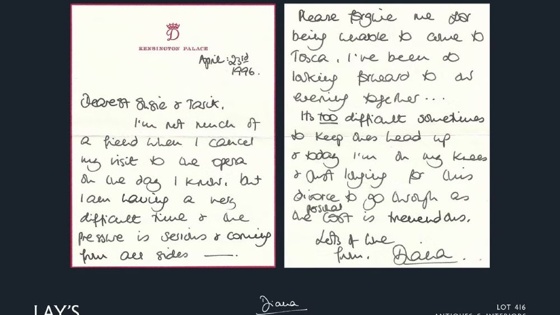 D
KENSINGTON PALACE
April. 23rd
1996.
Dearest Susie & Tarik.
I'm not much of
a friend when I cancel
my visit to the opera
on the day I know, but
I am having a very
difficult time & the
pressure is serious & coming
from all sides —
Please forgive me for
being unable to come to
Tosca. I've been so
looking forward to our
evening together...
It's too difficult sometimes
to keep ones head up
& today I'm on my knees
& just longing for this
divorce to go through as
the personal cost is tremendous.
Lots of love
from. Diana.
LAY'S
Diana
LOT 416